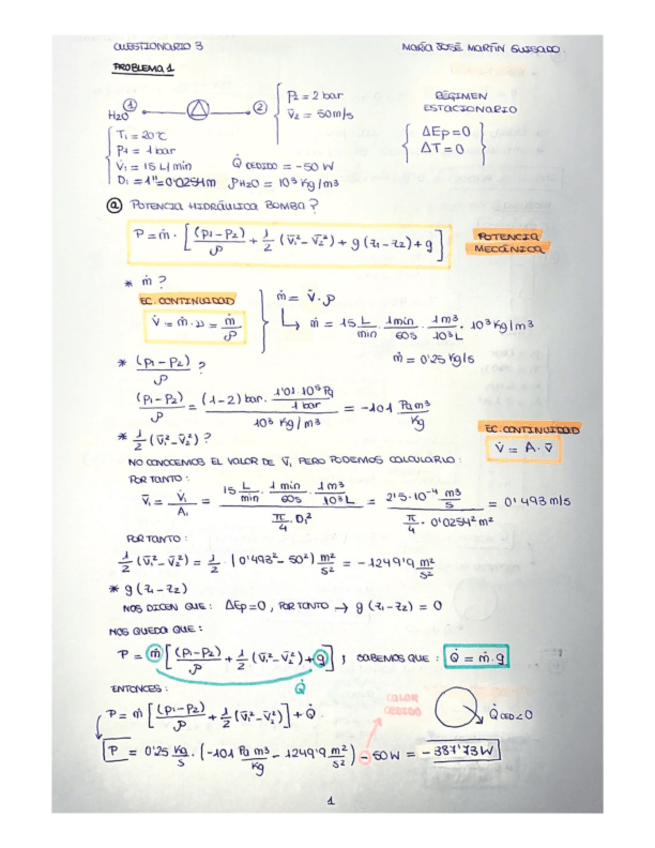 CUESTIONARIO 3 MARÍA JOSÉ MARTÍN GUISADO.
PROBLEMA 1
H₂O ① ② P₂ = 2 bar
V̄₂ = 50 m/s
RÉGIMEN
ESTACIONARIO
ΔEp = 0
ΔT = 0
T₁ = 20℃
P₁ = 1 bar
V̇₁ = 15 L/min Q̇ CEDIDO = -50 W
D₁ = 1" = 0'0254m ρH₂O = 10³ Kg/m³
ⓐ POTENCIA HIDRÁULICA BOMBA?
P = ṁ · [(P₁-P₂)/ρ + 1/2 (V̄₁² - V̄₂²) + g (z₁-z₂) + q]
POTENCIA
MECÁNICA
* ṁ ?
EC. CONTINUIDAD
V̇ = ṁ · υ = ṁ/ρ
ṁ = V̇ · ρ
↳ ṁ = 15 L/min · 1min/60s · 1m³/10³L · 10³ Kg/m³
ṁ = 0'25 Kg/s
* (P₁-P₂)/ρ ?
(P₁-P₂)/ρ = (1-2) bar · 1'01·10⁵ Pa/1 bar / 10³ Kg/m³ = -101 Pa m³/Kg
* 1/2 (V̄₁² - V̄₂²) ?
EC. CONTINUIDAD
V̇ = A · V̄
NO CONOCEMOS EL VALOR DE V̄₁ PERO PODEMOS CALCULARLO:
POR TANTO:
V̄₁ = V̇₁/A₁ = 15 L/min · 1 min/60s · 1m³/10³L / π/4 · D₁² = 2'5·10⁻⁴ m³/s / π/4 · 0'0254² m² = 0'493 m/s
POR TANTO:
1/2 (V̄₁² - V̄₂²) = 1/2 · (0'493² - 50²) m²/s² = -1249'9 m²/s²
* g (z₁-z₂)
NOS DICEN QUE: ΔEp = 0, POR TANTO → g (z₁-z₂) = 0
NOS QUEDA QUE:
P = ṁ [(P₁-P₂)/ρ + 1/2 (V̄₁² - V̄₂²) + q] ; SABEMOS QUE: Q̇ = ṁ·q
Q̇
ENTONCES:
CALOR
CEDIDO
P = ṁ [(P₁-P₂)/ρ + 1/2 (V̄₁² - V̄₂²)] + Q̇.
Q̇CED < 0
P = 0'25 Kg/s · (-101 Pa m³/Kg - 1249'9 m²/s²) - 50 W = -387'73 W
1